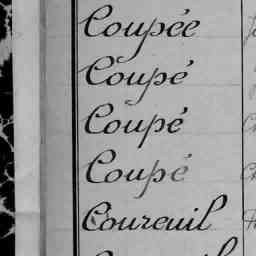 Coupée
Coupé
Coupé
Coupé
Coureuil